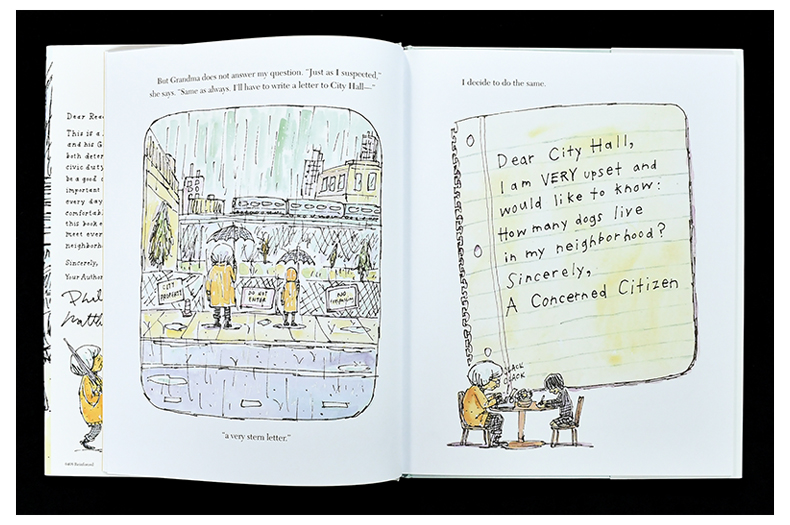 Dear Rea
This is a
and his G
both deter
civic duty
be a good
important
every day
comfortabl
this book
meet ever
neighborh
Sincerely,
Your Author
Phil
But Grandma does not answer my question. "Just as I suspected,"
she says. "Same as always. I'll have to write a letter to City Hall—"
CITY
PROPERTY
DO NOT
ENTER
"a very stern letter."
I decide to do the same.
Dear City Hall,
I am VERY upset and
would like to know:
How many dogs live
in my neighborhood?
Sincerely,
A Concerned Citizen
CLACK
CLACK